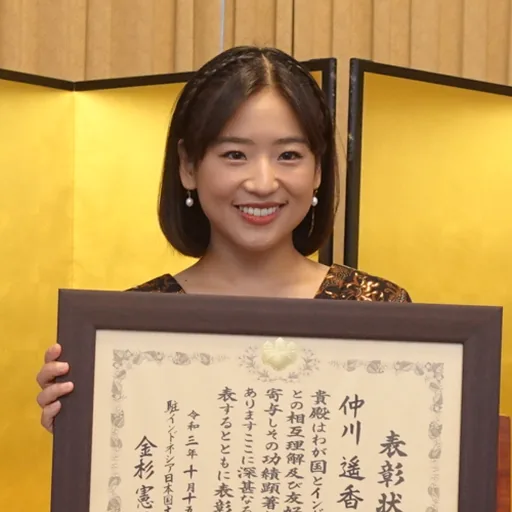 表彰状
仲川遥香
貴殿はわが国とイン
との相互理解及び友好
寄与しその功績顕著
ありますここに深甚なる
表するとともに表彰
令和三年十月十五
駐インドネシア日本国
金杉憲